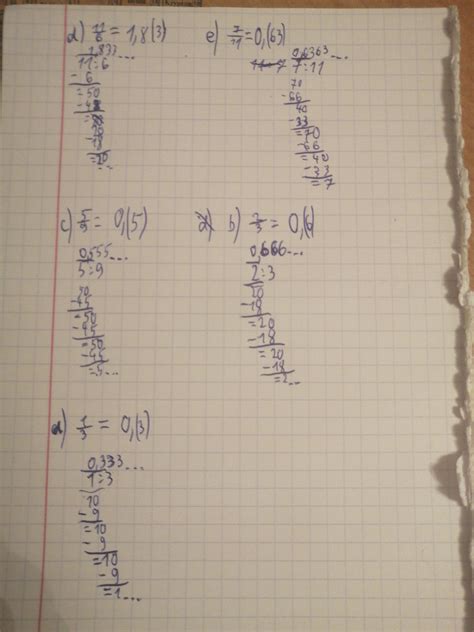 d) 11/6 = 1,8(3)
1,833...
11:6
- 6
=50
-48
=20
-18
=20...
e) 7/11 = 0,(63)
0,6363...
7:11
70
-66
40
-33
=70
-66
=40
-33
=7
c) 5/9 = 0,(5)
0,555...
5:9
50
-45
=50
-45
=50
-45
=5...
b) 2/3 = 0,(6)
0,666...
2:3
20
-18
=20
-18
=20
-18
=2...
a) 1/3 = 0,(3)
0,333...
1:3
10
-9
=10
-9
=10
-9
=1...